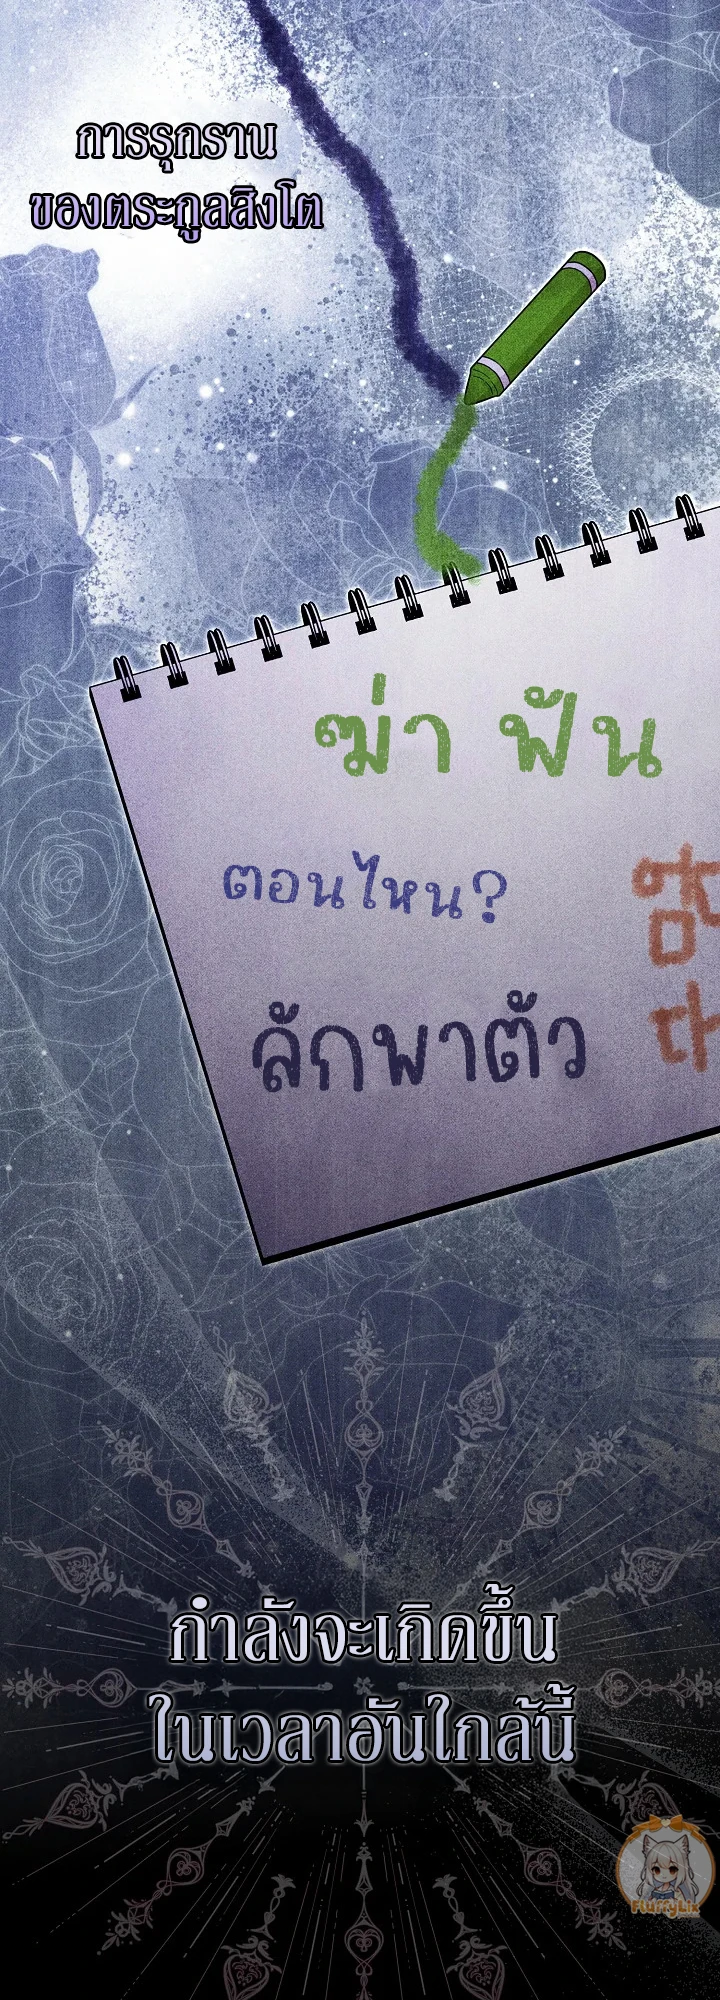 การรุกราน
ของตระกูลสิงโต
ฆ่า ฟัน
ตอนไหน?
ลักพาตัว
กำลังจะเกิดขึ้น
ในเวลาอันใกล้นี้
FluffyLix